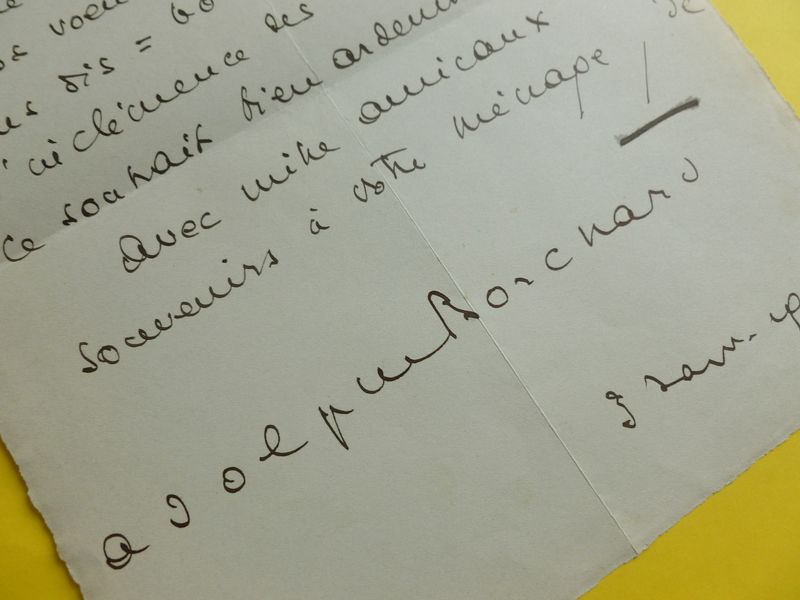 voeu
sis = 60
inclémence des
ce souhait bien ardemm
avec mille amicaux
souvenirs à votre ménage / Je
adolphe Borchard